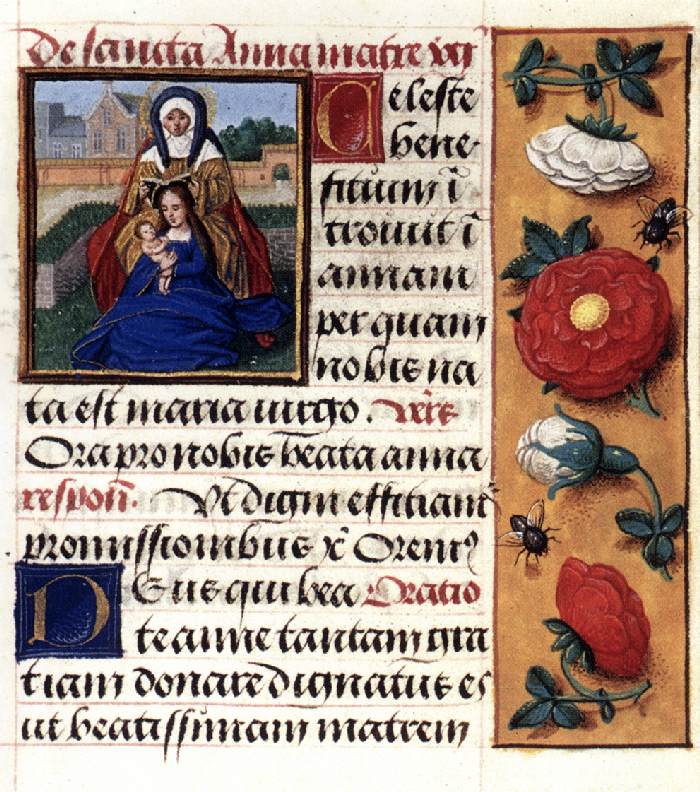 De sancta Anna matre vgĩ
Celeste
bene-
fitium ĩ
trouuit ĩ
annam
per quam
nobis na
ta est maria uirgo. vr̃s
Ora pro nobis beata anna
respoñ. Vt digni effitiam̃
promissionibus xp̃ Orem⁹
Deus qui bea Oratio
te anne tantam gra
tiam donare dignatus es
ut beatissimam matrem